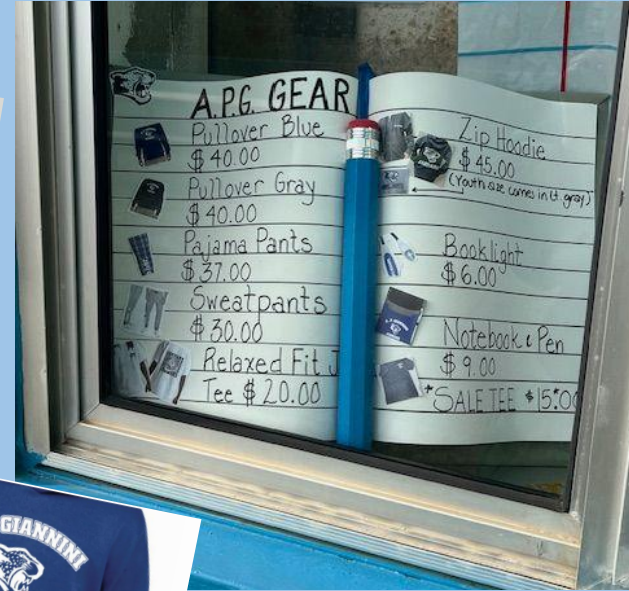 A.P.G. GEAR
Pullover Blue
$40.00
Pullover Gray
$40.00
Pajama Pants
$37.00
Sweatpants
$30.00
Relaxed Fit J
Tee $20.00
Zip Hoodie
$45.00
(Youth size comes in lt. gray)
Booklight
$6.00
Notebook & Pen
$9.00
*SALE TEE *$15.00
GIANNINI